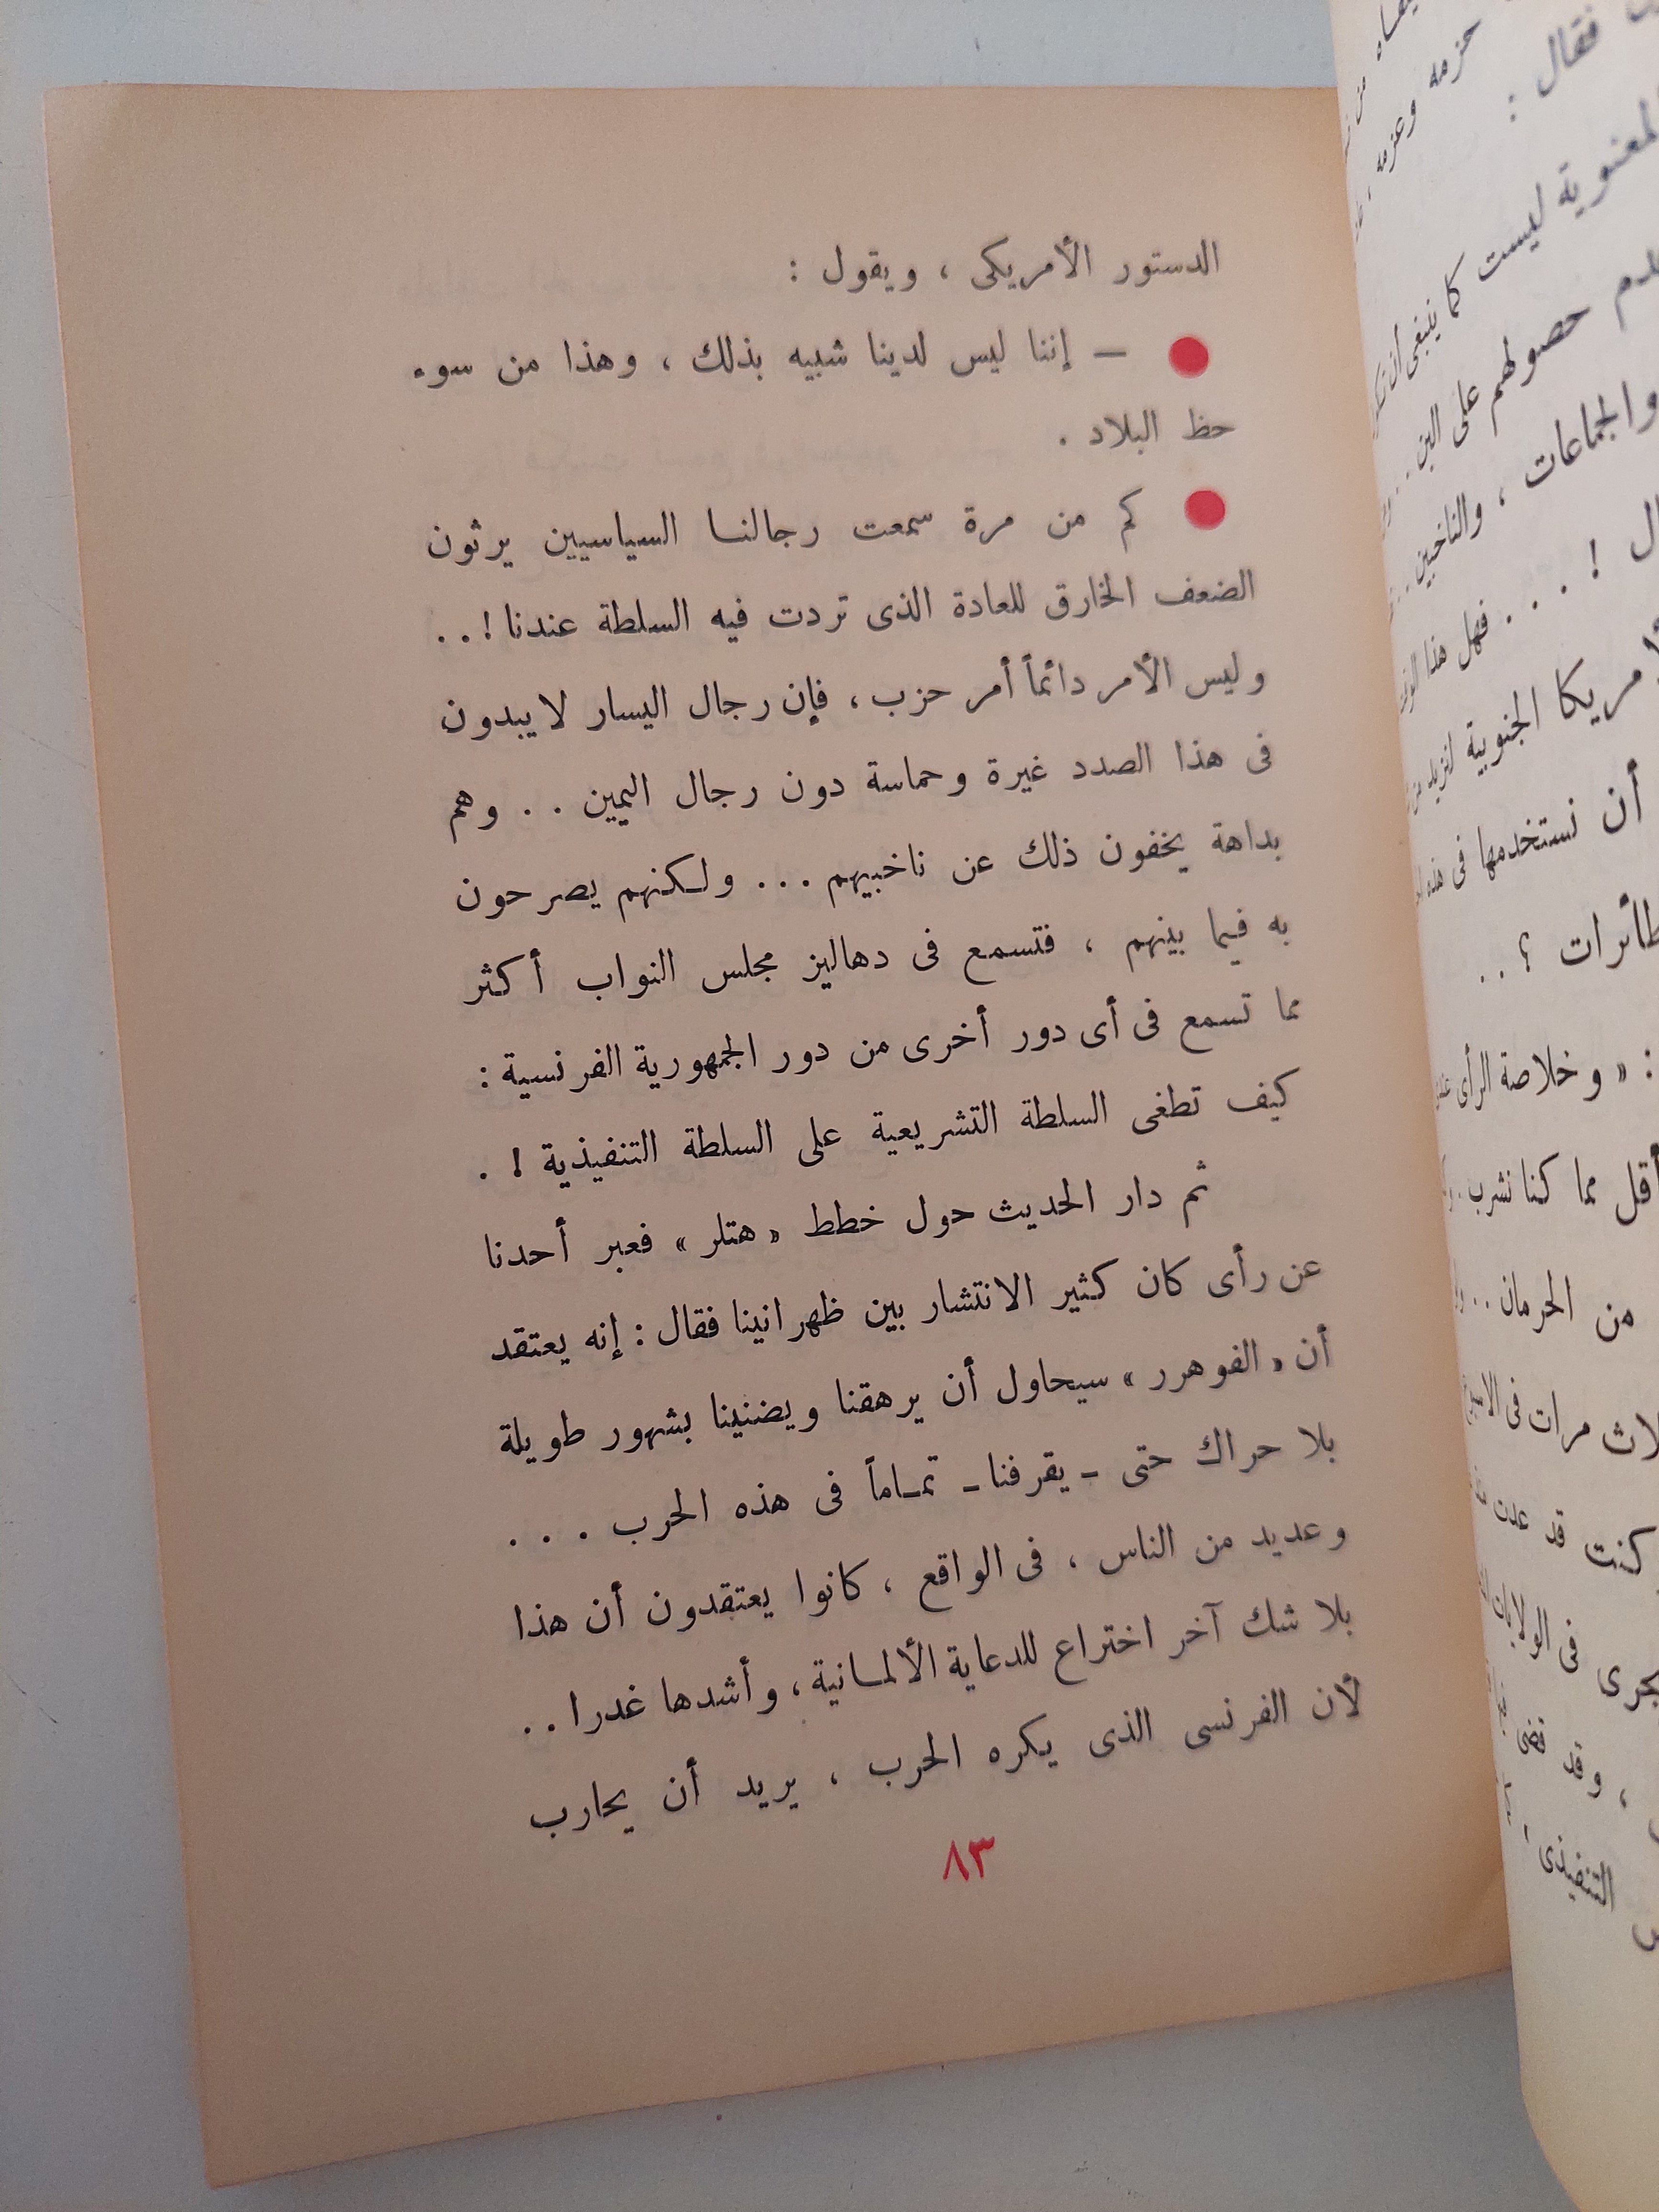 الدستور الأمريكى ، ويقول :
● — إننا ليس لدينا شبيه بذلك ، وهذا من سوء
حظ البلاد .
● كم من مرة سمعت رجالنا السياسيين يرثون
الضعف الخارق للعادة الذى تردت فيه السلطة عندنا ! . .
وليس الأمر دائماً أمر حزب ، فإن رجال اليسار لا يبدون
فى هذا الصدد غيرة وحماسة دون رجال اليمين . . وهم
بداهة يخفون ذلك عن ناخبيهم . . . ولكنهم يصرحون
به فيما بينهم ، فتسمع فى دهاليز مجلس النواب أكثر
مما تسمع فى أى دور أخرى من دور الجمهورية الفرنسية :
كيف تطغى السلطة التشريعية على السلطة التنفيذية ! .
ثم دار الحديث حول خطط « هتلر » فعبر أحدنا
عن رأى كان كثير الانتشار بين ظهرانينا فقال : إنه يعتقد
أن « الفوهرر » سيحاول أن يرهقنا ويضنينا بشهور طويلة
بلا حراك حتى - يقرفنا - تماماً فى هذه الحرب . . .
وعديد من الناس ، فى الواقع ، كانوا يعتقدون أن هذا
بلا شك آخر اختراع للدعاية الألمانية ، وأشدها غدرا . .
لأن الفرنسى الذى يكره الحرب ، يريد أن يحارب
٨٣
فقال :
حزمه وعزمه
المعنوية ليست كما ينبغى أن
حصولهم على
والجماعات ، والناخبين . .
! . . . فهل هذا
أمريكا الجنوبية
أن نستخدمها فى هذه
طائرات ؟ . .
: « وخلاصة الرأى
أقل مما كنا نشرب
من الحرمان . .
مرات فى
كنت قد عدت
فى الولايات
، وقد
التنفيذى